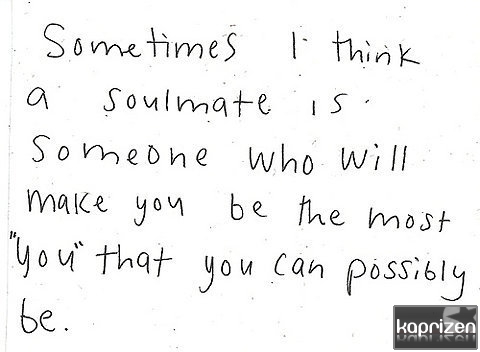 Sometimes I think
a soulmate is
someone who will
make you be the most
"you" that you can possibly
be.
kaprizen